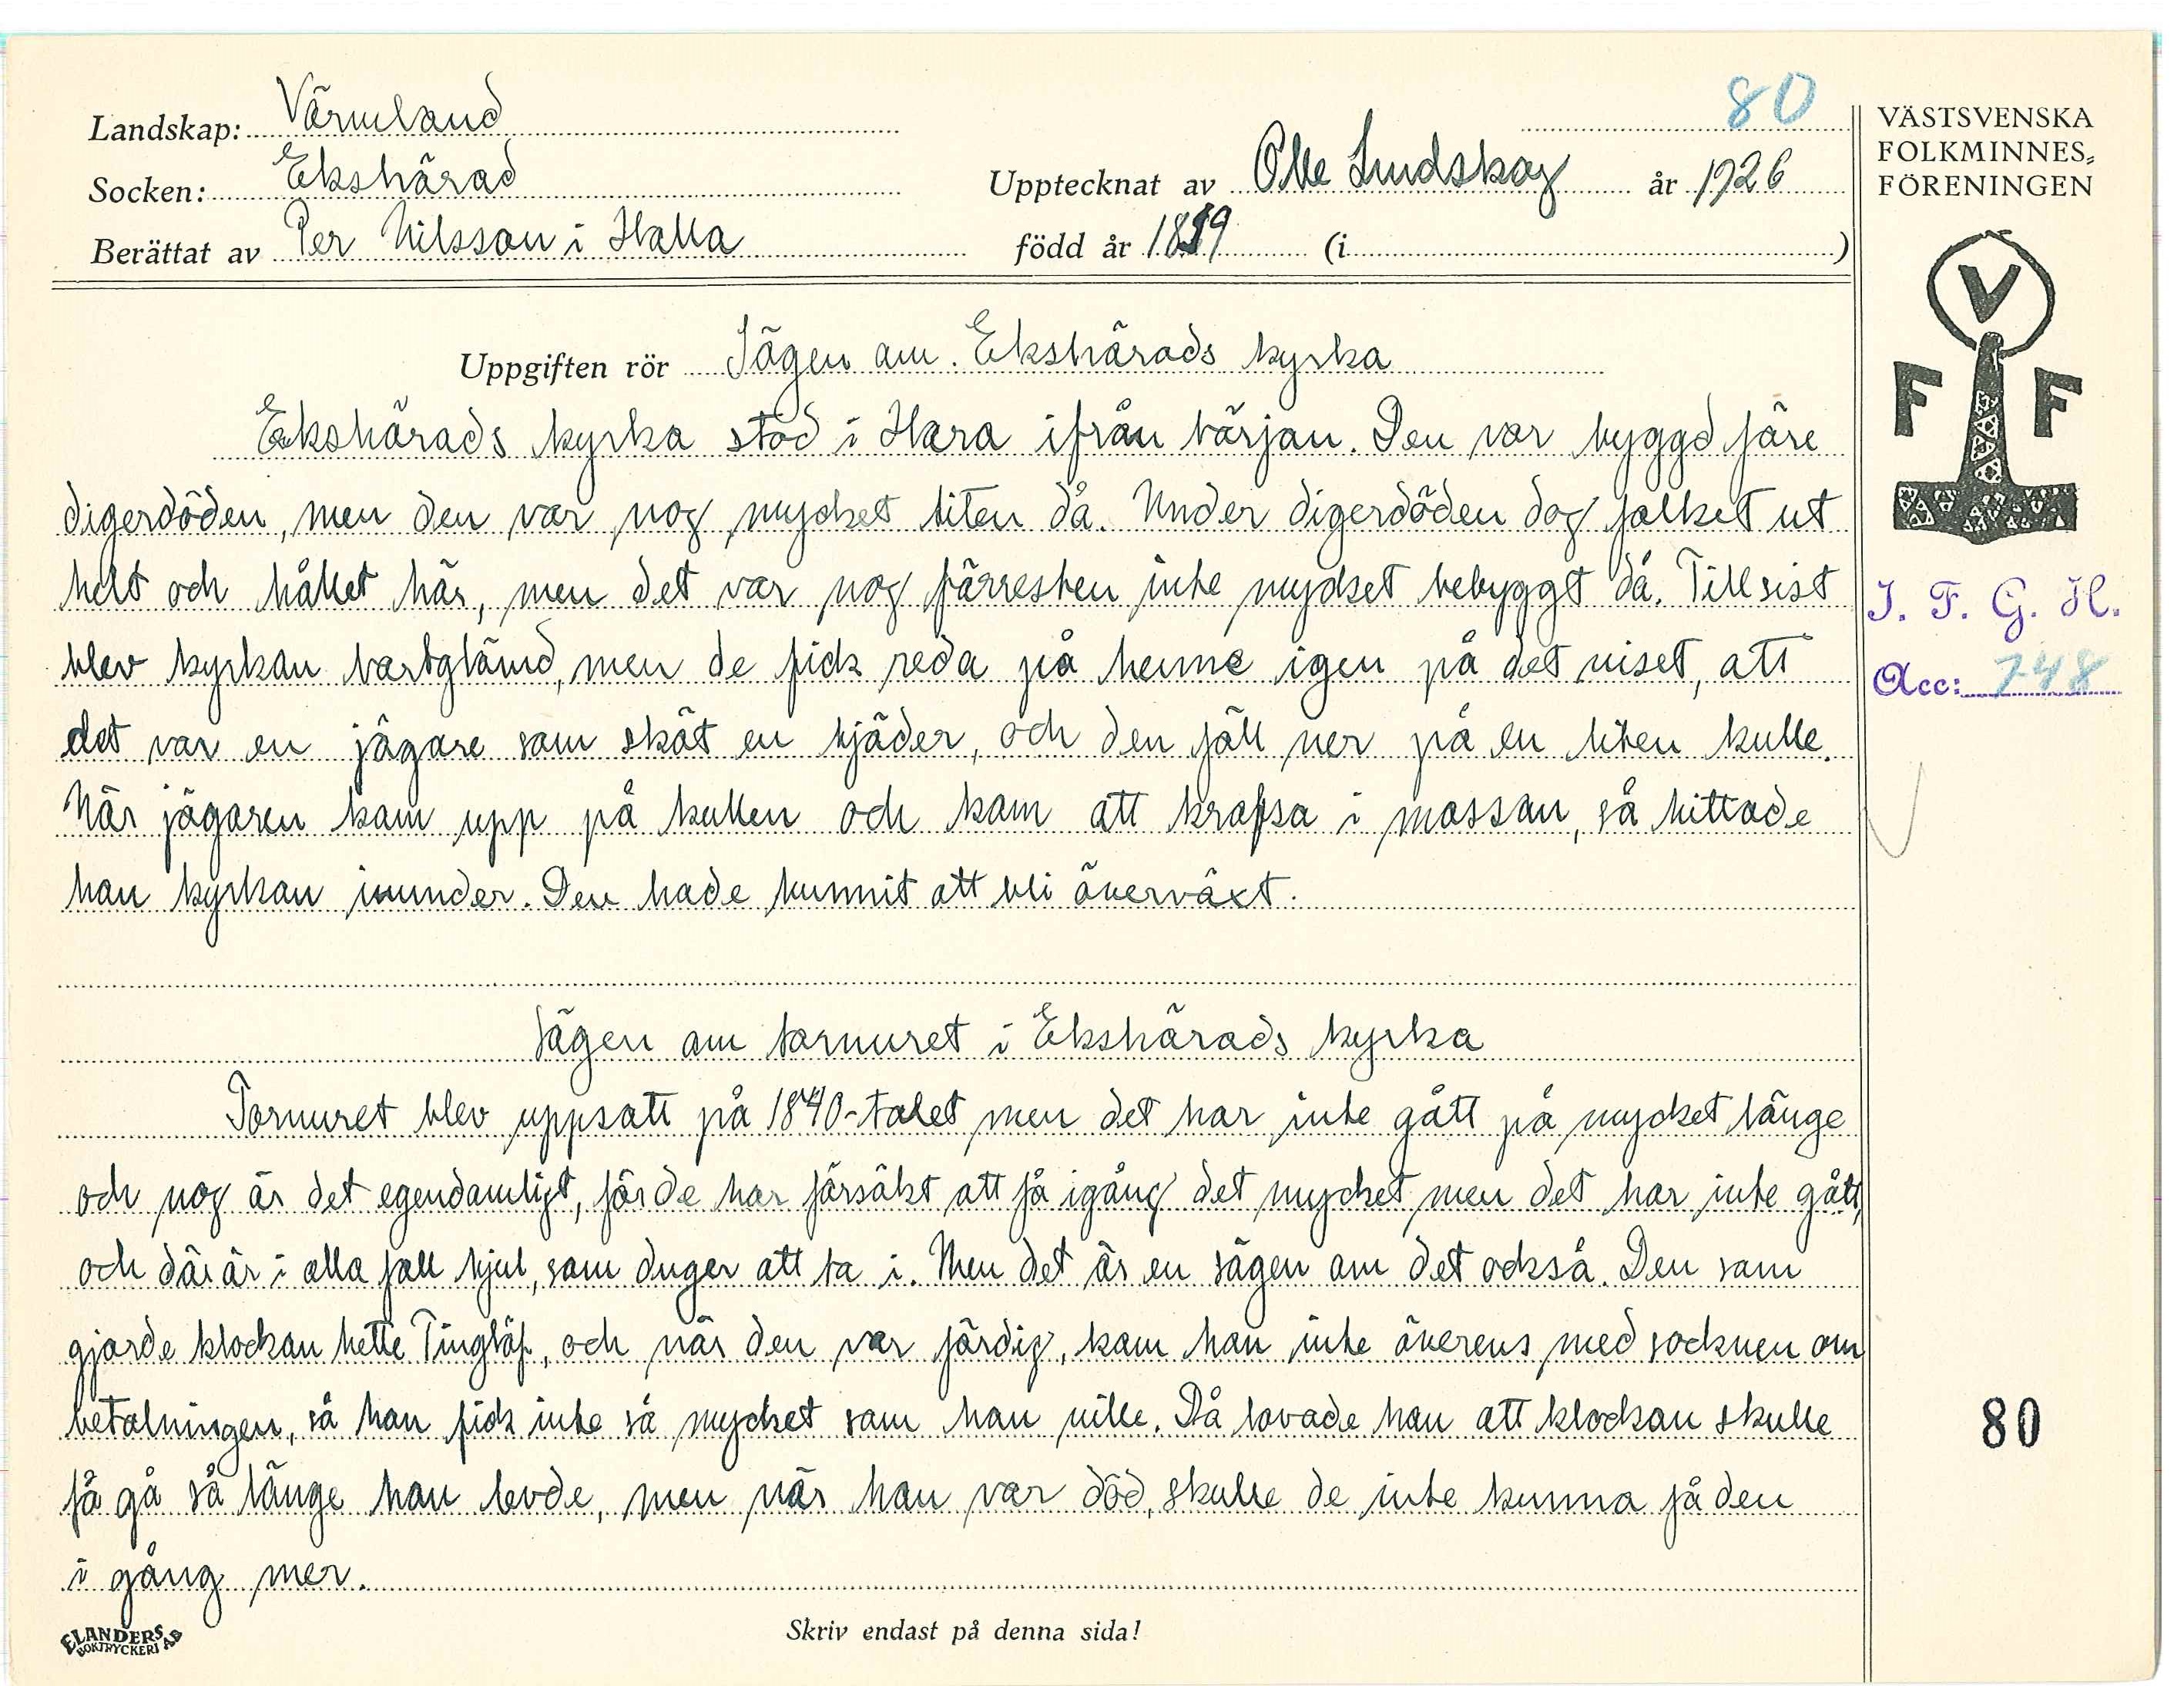 80
Landskap: Värmland
Socken: Ekshärad
Upptecknat av Olle Lindskog år 1926
Berättat av Per Nilsson i Halla
född år 1859 (i )
VÄSTSVENSKA
FOLKMINNES-
FÖRENINGEN
V
F F
I. F. G. H.
Acc: 748
Uppgiften rör Sägen om Ekshärads kyrka
Ekshärads kyrka stod i Hara ifrån början. Den var byggd före
digerdöden, men den var nog mycket liten då. Under digerdöden dog folket ut
helt och hållet här, men det var nog förresten inte mycket bebyggt då. Till sist
blev kyrkan bortglömd, men de fick reda på henne igen på det viset, att
det var en jägare som sköt en tjäder, och den föll ner på en liten kulle.
När jägaren kom upp på kullen och kom att krafsa i mossan, så hittade
han kyrkan inunder. Den hade hunnit att bli överväxt.
Sägen om tornuret i Ekshärads kyrka
Tornuret blev uppsatt på 1840-talet men det har inte gått på mycket länge
och nog är det egendomligt, för de har försökt att få igång det mycket men det har inte gått,
och där är i alla fall hjul, som duger att ta i. Men det är en sägen om det också. Den som
gjorde klockan hette Tinglöf, och när den var färdig, kom han inte överens med socknen om
betalningen, så han fick inte så mycket som han ville. Då lovade han att klockan skulle
få gå så länge han levde, men när han var död, skulle de inte kunna få den
i gång mer.
80
Skriv endast på denna sida!
ELANDERS
BOKTRYCKERI AB